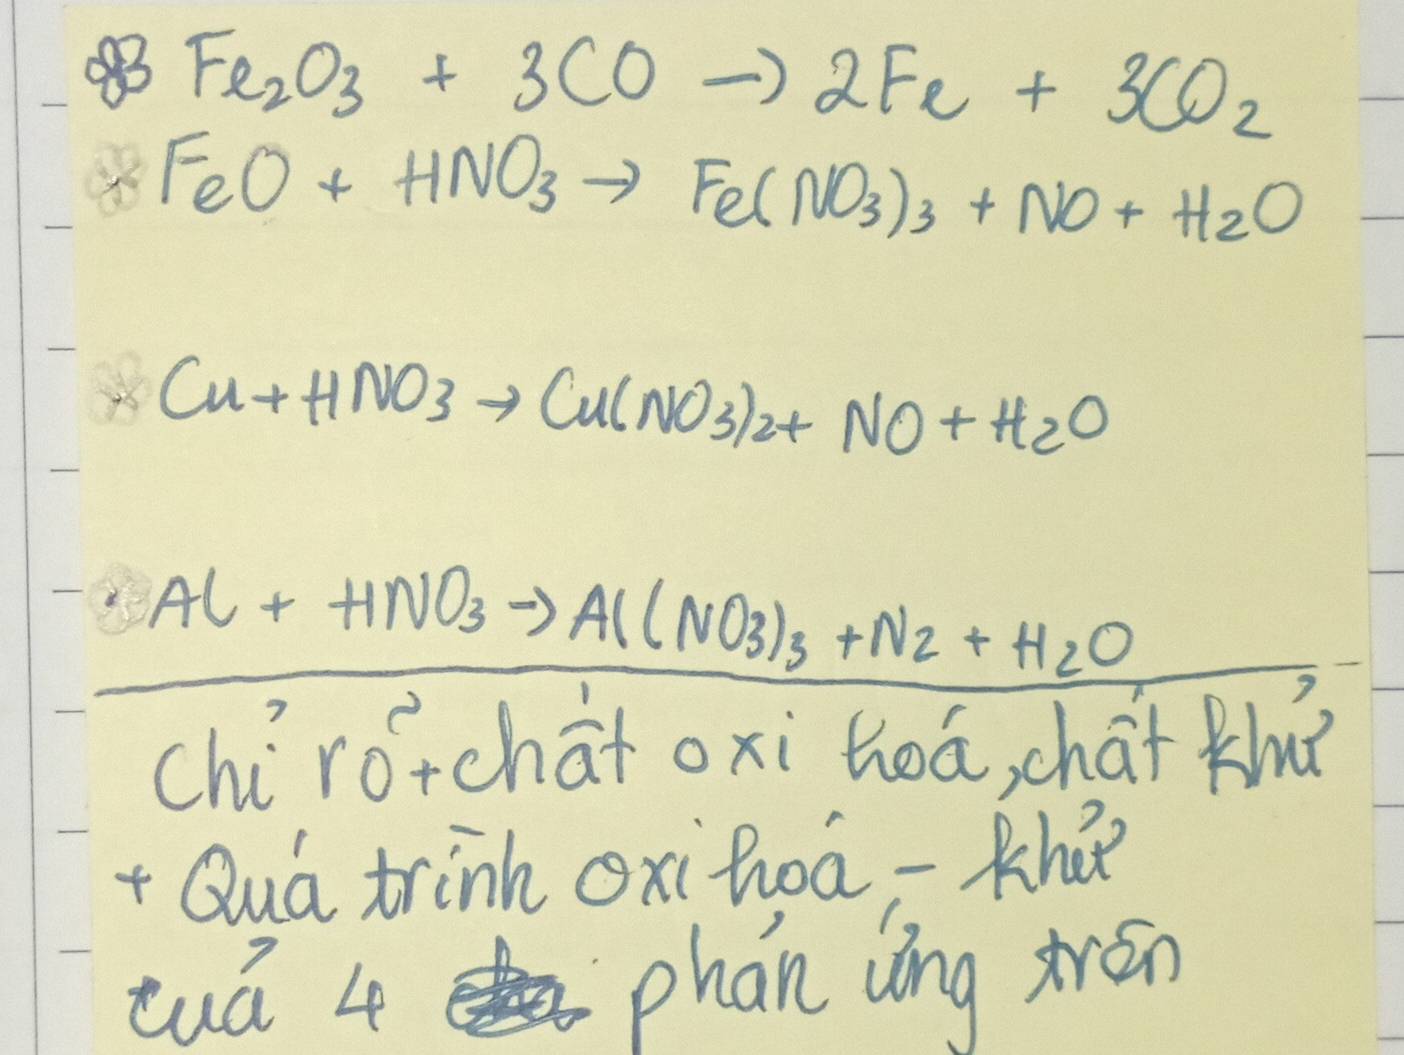 Fe₂O₃ + 3CO → 2Fe + 3CO₂
FeO + HNO₃ → Fe(NO₃)₃ + NO + H₂O
Cu + HNO₃ → Cu(NO₃)₂ + NO + H₂O
Al + HNO₃ → Al(NO₃)₃ + N₂ + H₂O
Chỉ rõ + chất oxi hoá, chất khử
+ Quá trình oxi hoá - khử
của 4 phản ứng trên